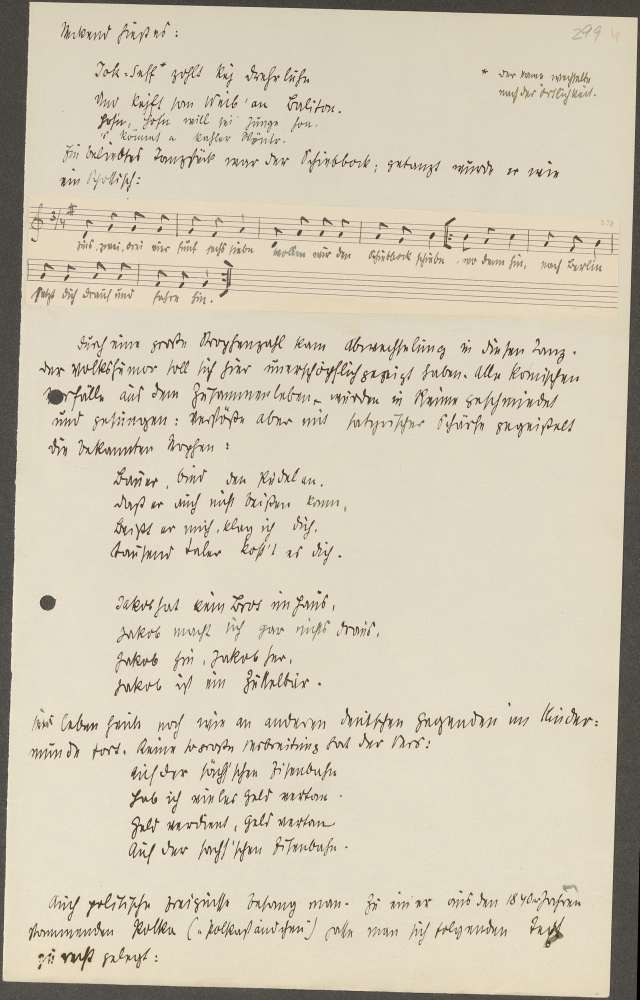 299
wend hieß es:
Jok-Seff* zohlt kej Drehrluhn
* Der Name wechselte
nach der Örtlichkeit.
Und kejft san Weib' an Baliton.
John, John will sei Junge hon.
's kömmt a kahler Wintr.
Ein beliebtes Tanzstück war der Schiebbock; getanzt wurde er wie
ein Schottisch:
Eins, zwei, drei vier fünf sechs siebn wollen wir den Schiebbock schiebn, wo denn hin, nach Berlin
setzt dich drauf und fahre hin.
Durch eine große Strophenzahl kam Abwechselung in diesen Tanz.
Der Volkshumor soll sich hier unerschöpflich gezeigt haben. Alle komischen
Vorfälle aus dem Zusammenleben wurden in Reime geschmiedet
und gesungen: Verstöße aber mit satyrischer Schärfe gegeißelt
Die bekannten Strophen:
Bauer, bind den Pudel an,
daß er auch nicht beißen kann,
Beißt er mich, klag ich dich,
tausend Taler kost't es dich.
Jakob hat kein Brot im Haus,
Jakob macht sich gar nichts draus,
Jakob hin, Jakob her,
Jakob ist ein Zottelbär.
sie leben heute noch wie in anderen deutschen Gegenden im Kinder=
munde fort. Keine so große Verbreitung hat der Vers:
Auf der sächs'schen Eisenbahn
Hab ich vieles Geld vertan.
Geld verdient, Geld vertan
Auf der sächs'schen Eisenbahn.
Auch politische Ereignisse besang man. Zu einer aus den 1840er Jahren
stammenden Polka ("Polkaständchen") hatte man sich folgenden Text
zu recht gelegt: